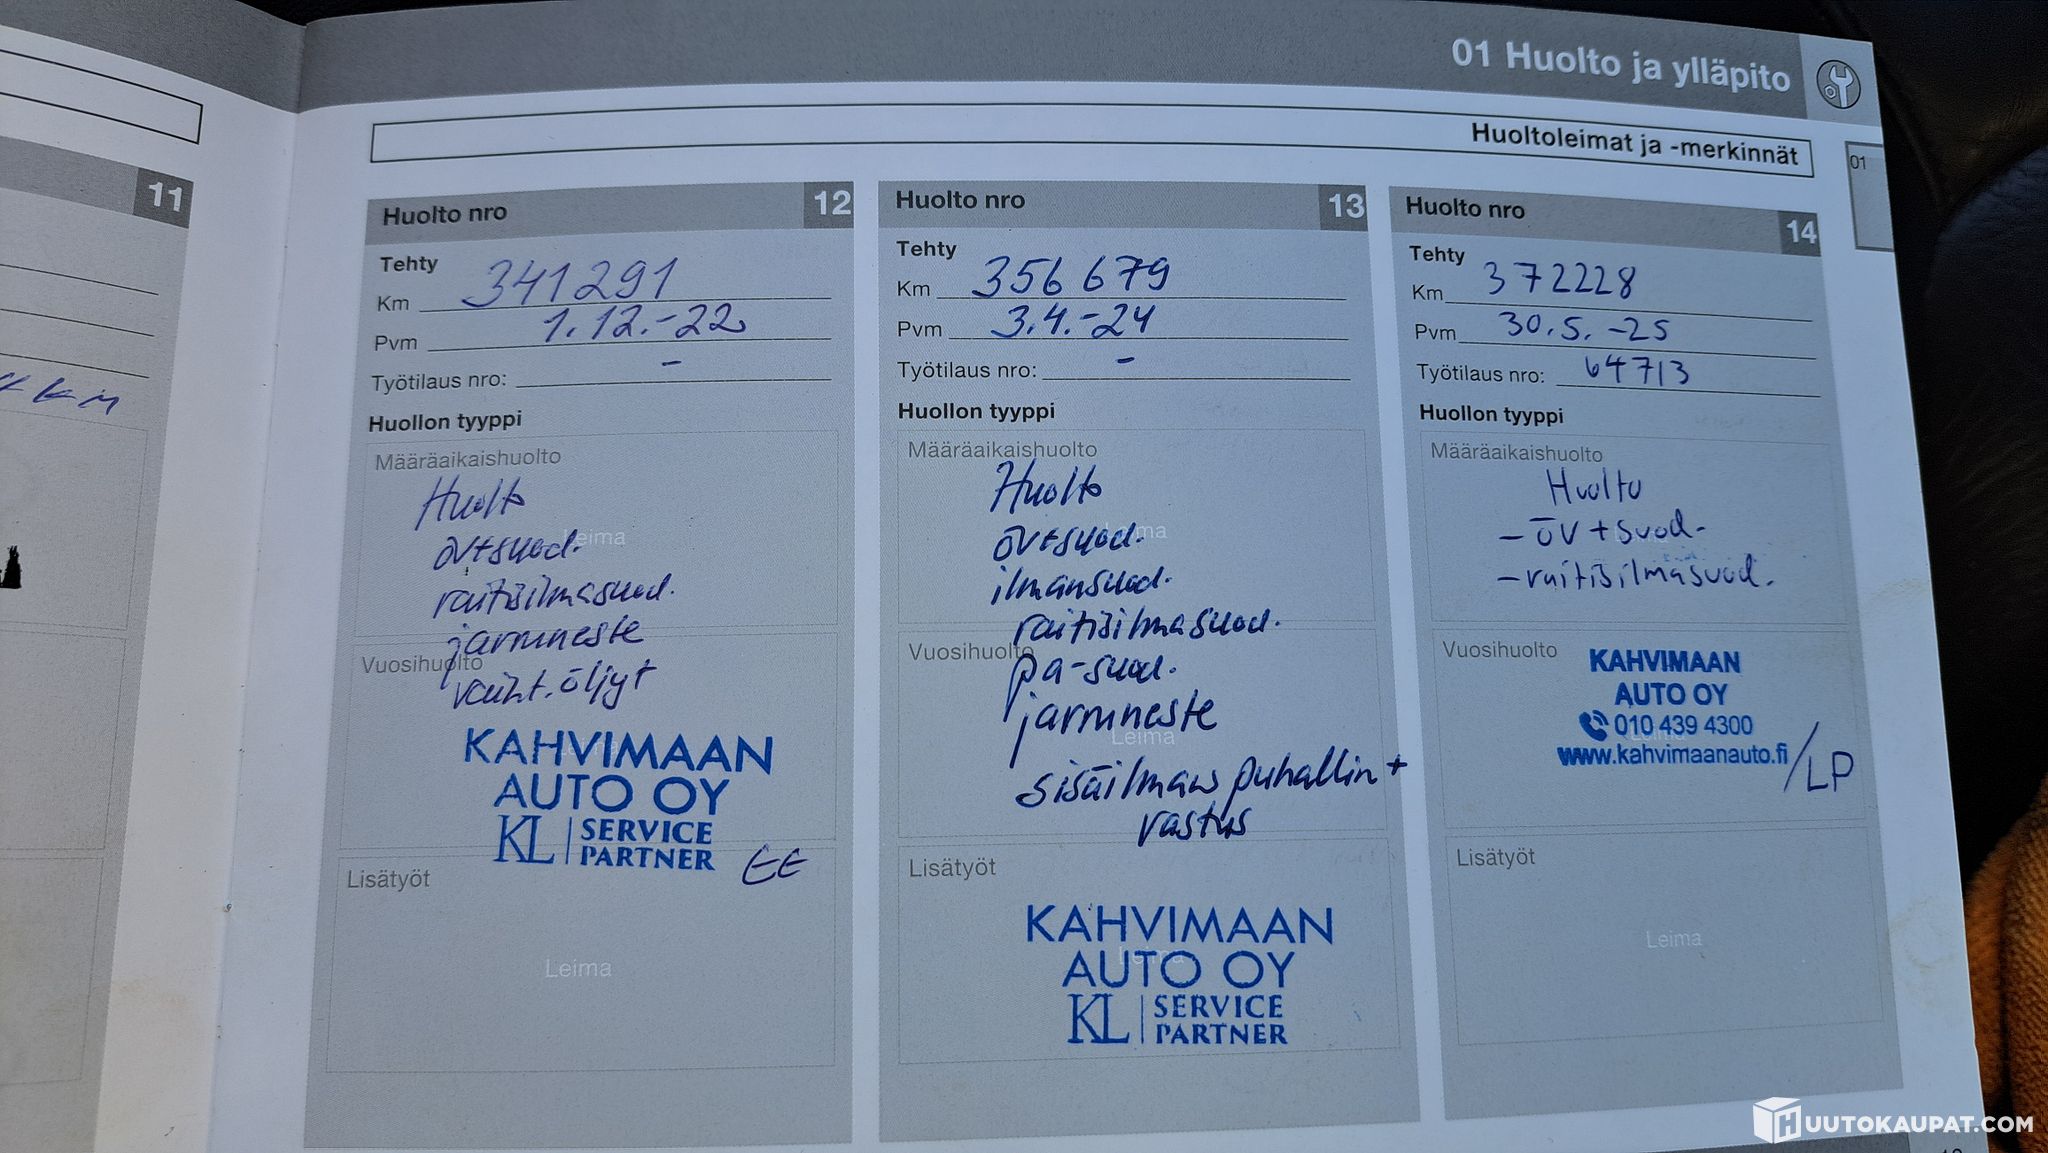 01 Huolto ja ylläpito
Huoltoleimat ja -merkinnät
01
11
KM
Huolto nro 12
Tehty
Km 341291
Pvm 1.12.-22
Työtilaus nro: -
Huollon tyyppi
Määräaikaishuolto
Huolto
Leima
öv+suod.
raitisilmasuod.
jarruneste
Vuosihuolto
vaiht. öljyt
Leima
KAHVIMAAN
AUTO OY
KL | SERVICE
PARTNER
EE
Lisätyöt
Leima
Huolto nro 13
Tehty
Km 356679
Pvm 3.4.-24
Työtilaus nro: -
Huollon tyyppi
Määräaikaishuolto
Huolto
Leima
öv+suod.
ilmansuod.
raitisilmasuod.
Vuosihuolto
pa-suod.
jarruneste
Leima
sisäilman puhallin +
vastus
Lisätyöt
KAHVIMAAN
Leima
AUTO OY
KL | SERVICE
PARTNER
Huolto nro 14
Tehty
Km 372228
Pvm 30.5.-25
Työtilaus nro: 64713
Huollon tyyppi
Määräaikaishuolto
Huolto
- öv + suod.
- raitisilmasuod.
Vuosihuolto
KAHVIMAAN
AUTO OY
010 439 4300
Leima
www.kahvimaanauto.fi /LP
Lisätyöt
Leima
HUUTOKAUPAT.COM